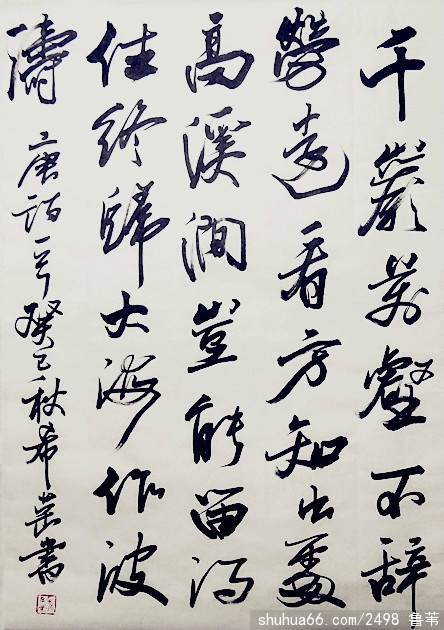 千巖萬壑不辞
勞遠看方知出處
高溪澗豈能留得
住终歸大海作波
濤 唐詩一首 癸巳秋希書
shuhua66.com/2498 鲁苇